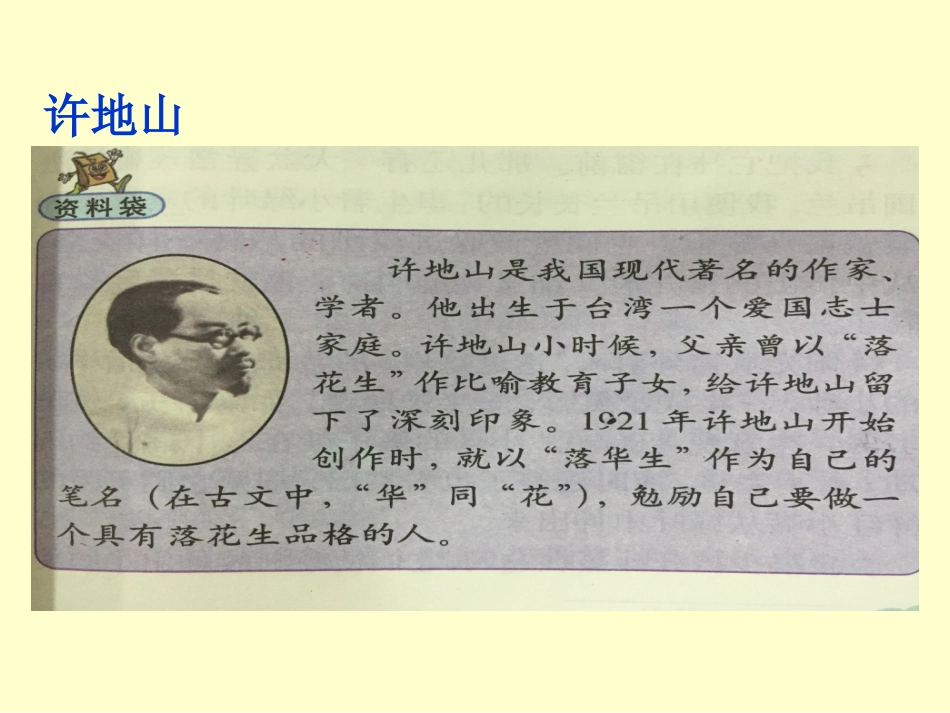 许地山
资料袋
许地山是我国现代著名的作家、
学者。他出生于台湾一个爱国志士
家庭。许地山小时候，父亲曾以“落
花生”作比喻教育子女，给许地山留
下了深刻印象。1921年许地山开始
创作时，就以“落华生”作为自己的
笔名（在古文中，“华”同“花”），勉励自己要做一
个具有落花生品格的人。